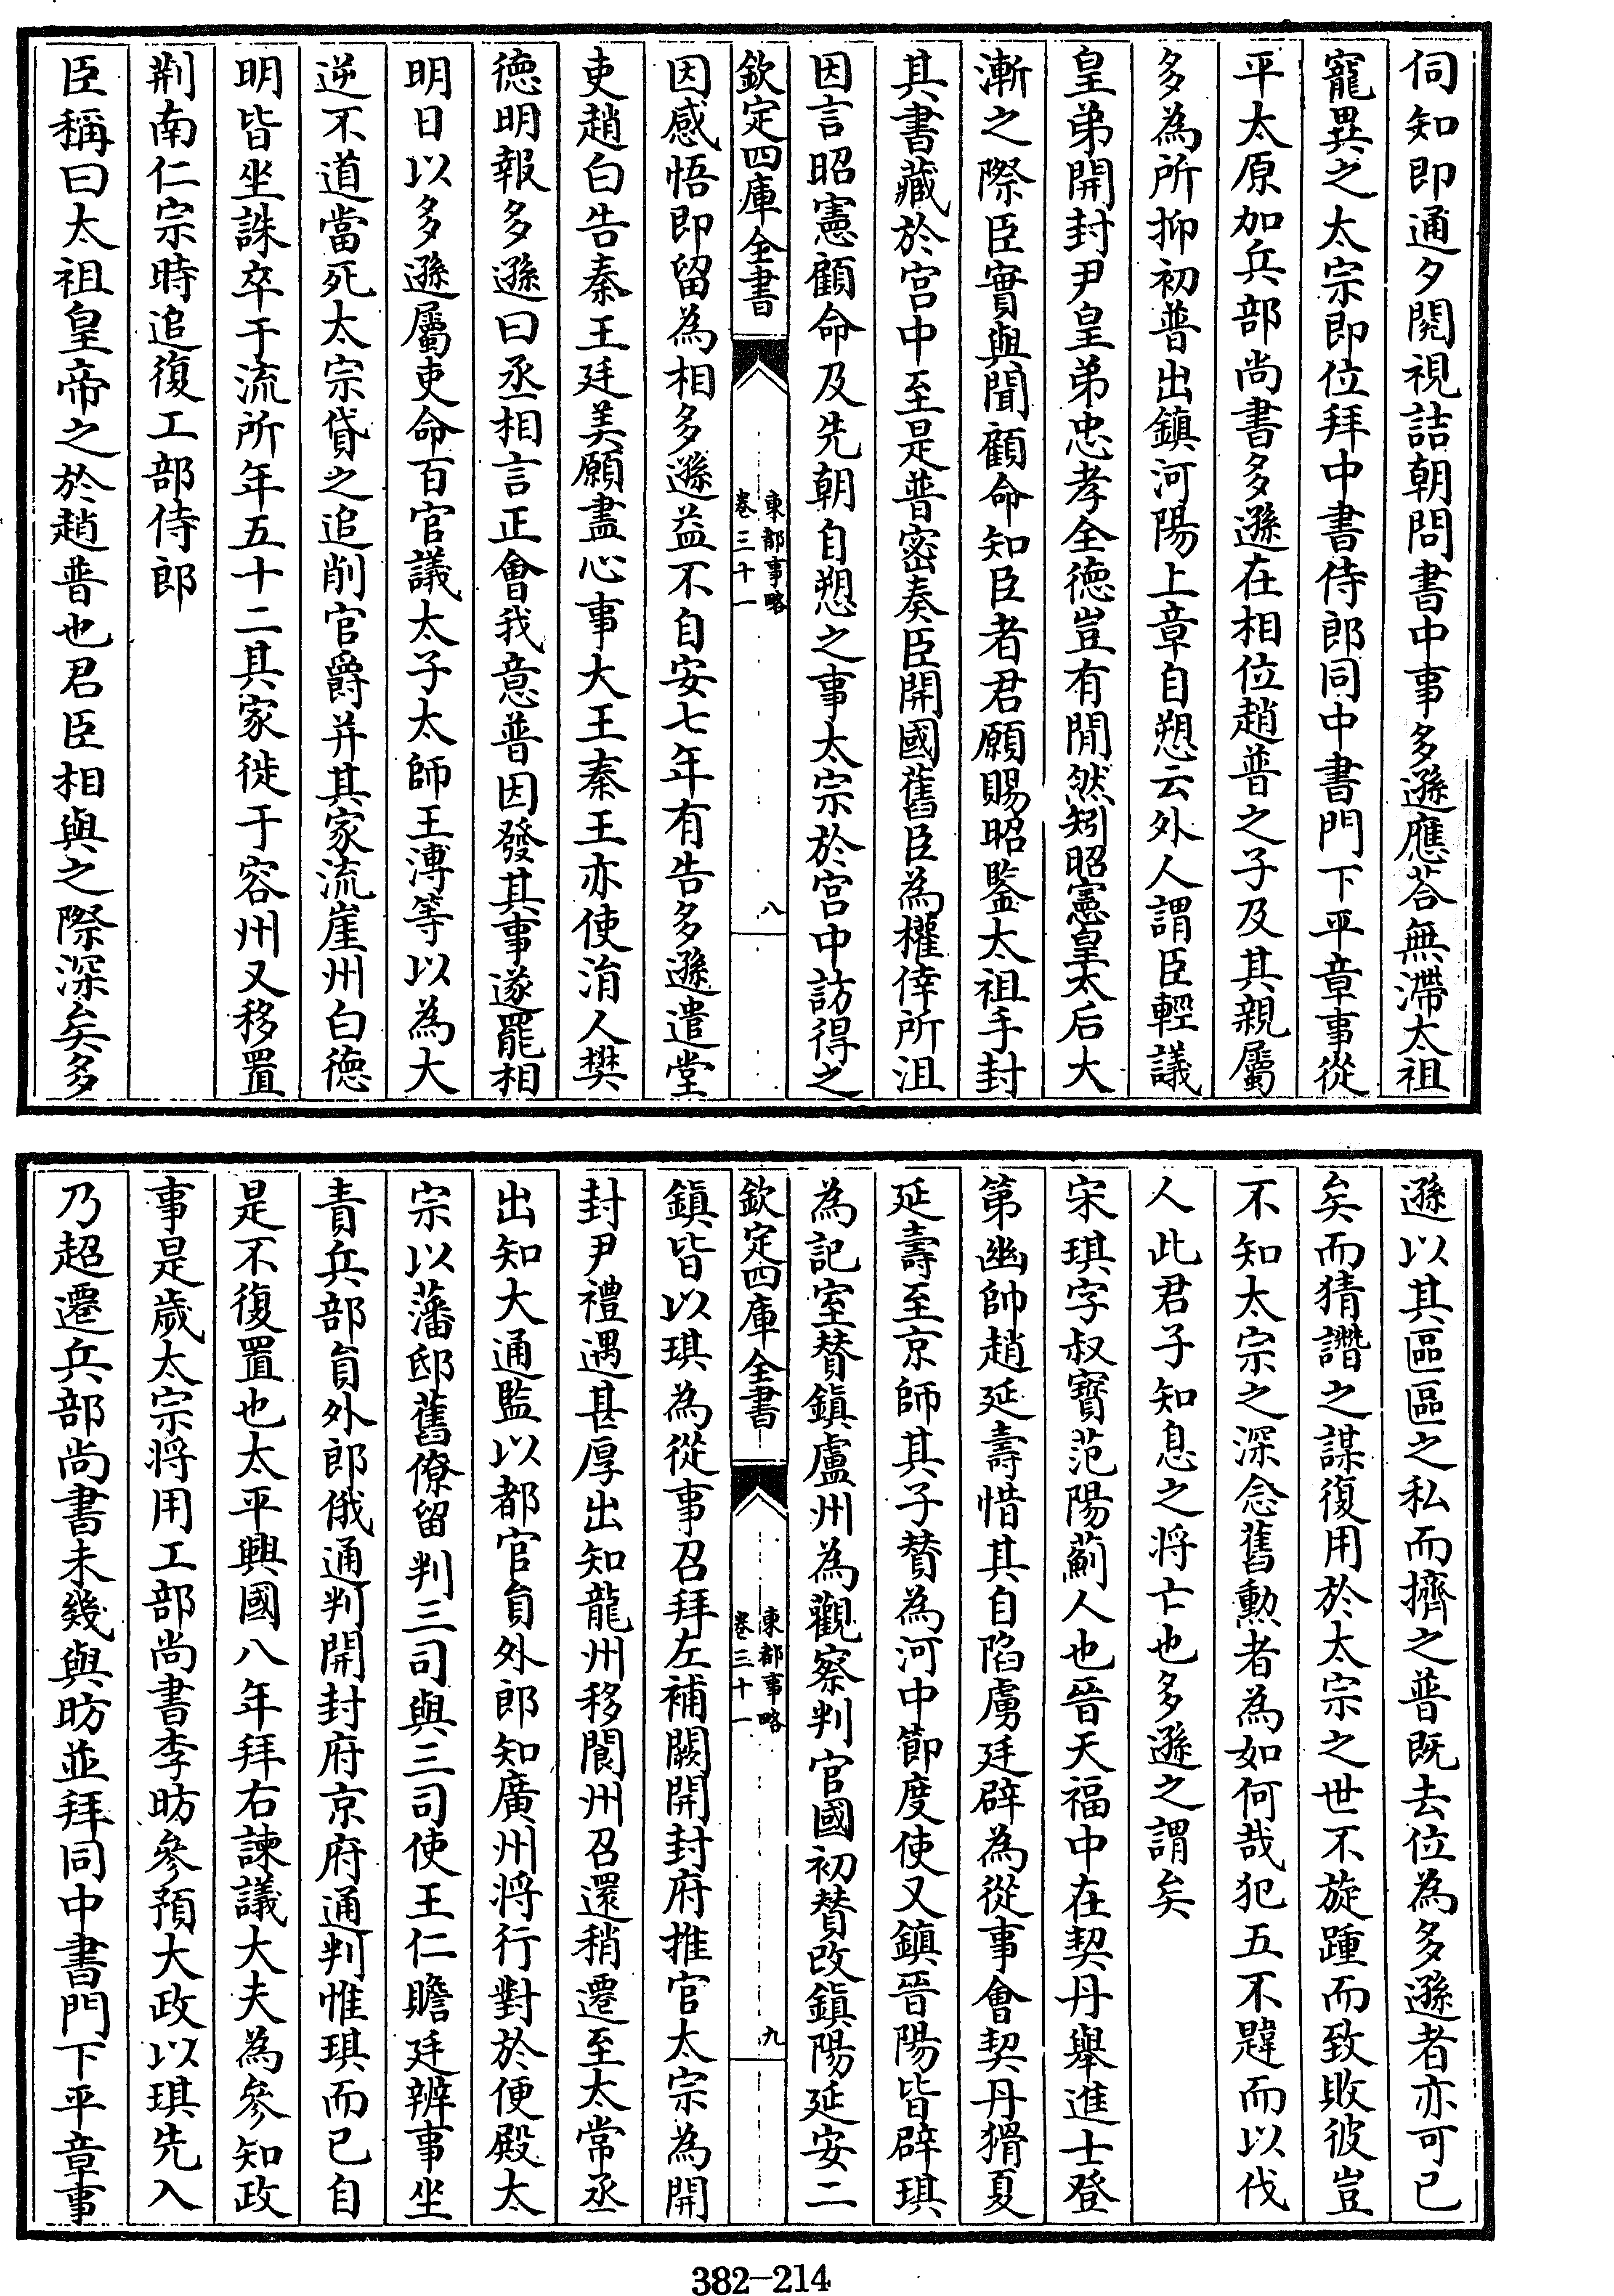 伺知即通夕閱視詰朝問書中事多遜應荅無滯太祖
寵異之太宗即位拜中書侍郎同中書門下平章事從
平太原加兵部尚書多遜在相位趙普之子及其親屬
多為所抑初普出鎮河陽上章自愬云外人謂臣輕議
皇弟開封尹皇弟忠孝全德豈有閒然矧昭憲皇太后大
漸之際臣實與聞顧命知臣者君願賜昭鑒太祖手封
其書藏於宫中至是普密奏臣開國舊臣為權倖所沮
因言昭憲顧命及先朝自愬之事太宗於宫中訪得之
欽定四庫全書
東都事略
卷三十一
八
因感悟即留為相多遜益不自安七年有告多遜遣堂
吏趙白告秦王廷美願盡心事大王秦王亦使涓人樊
德明報多遜曰丞相言正會我意普因發其事遂罷相
明日以多遜屬吏命百官議太子太師王溥等以為大
逆不道當死太宗貸之追削官爵并其家流崖州白德
明皆坐誅卒于流所年五十二其家徙于容州又移置
荆南仁宗時追復工部侍郎
臣稱曰太祖皇帝之於趙普也君臣相與之際深矣多
遜以其區區之私而擠之普既去位為多遜者亦可已
矣而猜譖之謀復用於太宗之世不旋踵而致敗彼豈
不知太宗之深念舊勲者為如何哉犯五不韙而以伐
人此君子知息之将亡也多遜之謂矣
宋琪字叔寶范陽薊人也晉天福中在契丹舉進士登
第幽帥趙延壽惜其自陷虜廷辟為從事會契丹猾夏
延壽至京師其子賛為河中節度使又鎮晉陽皆辟琪
為記室賛鎮盧州為觀察判官國初賛改鎮陽延安二
欽定四庫全書
東都事略
卷三十一
九
鎮皆以琪為從事召拜左補闕開封府推官太宗為開
封尹禮遇甚厚出知龍州移閬州召還稍遷至太常丞
出知大通監以都官員外郎知廣州将行對於便殿太
宗以藩邸舊僚留判三司與三司使王仁贍廷辨事坐
責兵部員外郎俄通判開封府京府通判惟琪而已自
是不復置也太平興國八年拜右諫議大夫為參知政
事是歲太宗将用工部尚書李昉參預大政以琪先入
乃超遷兵部尚書未幾與昉並拜同中書門下平章事
382-214